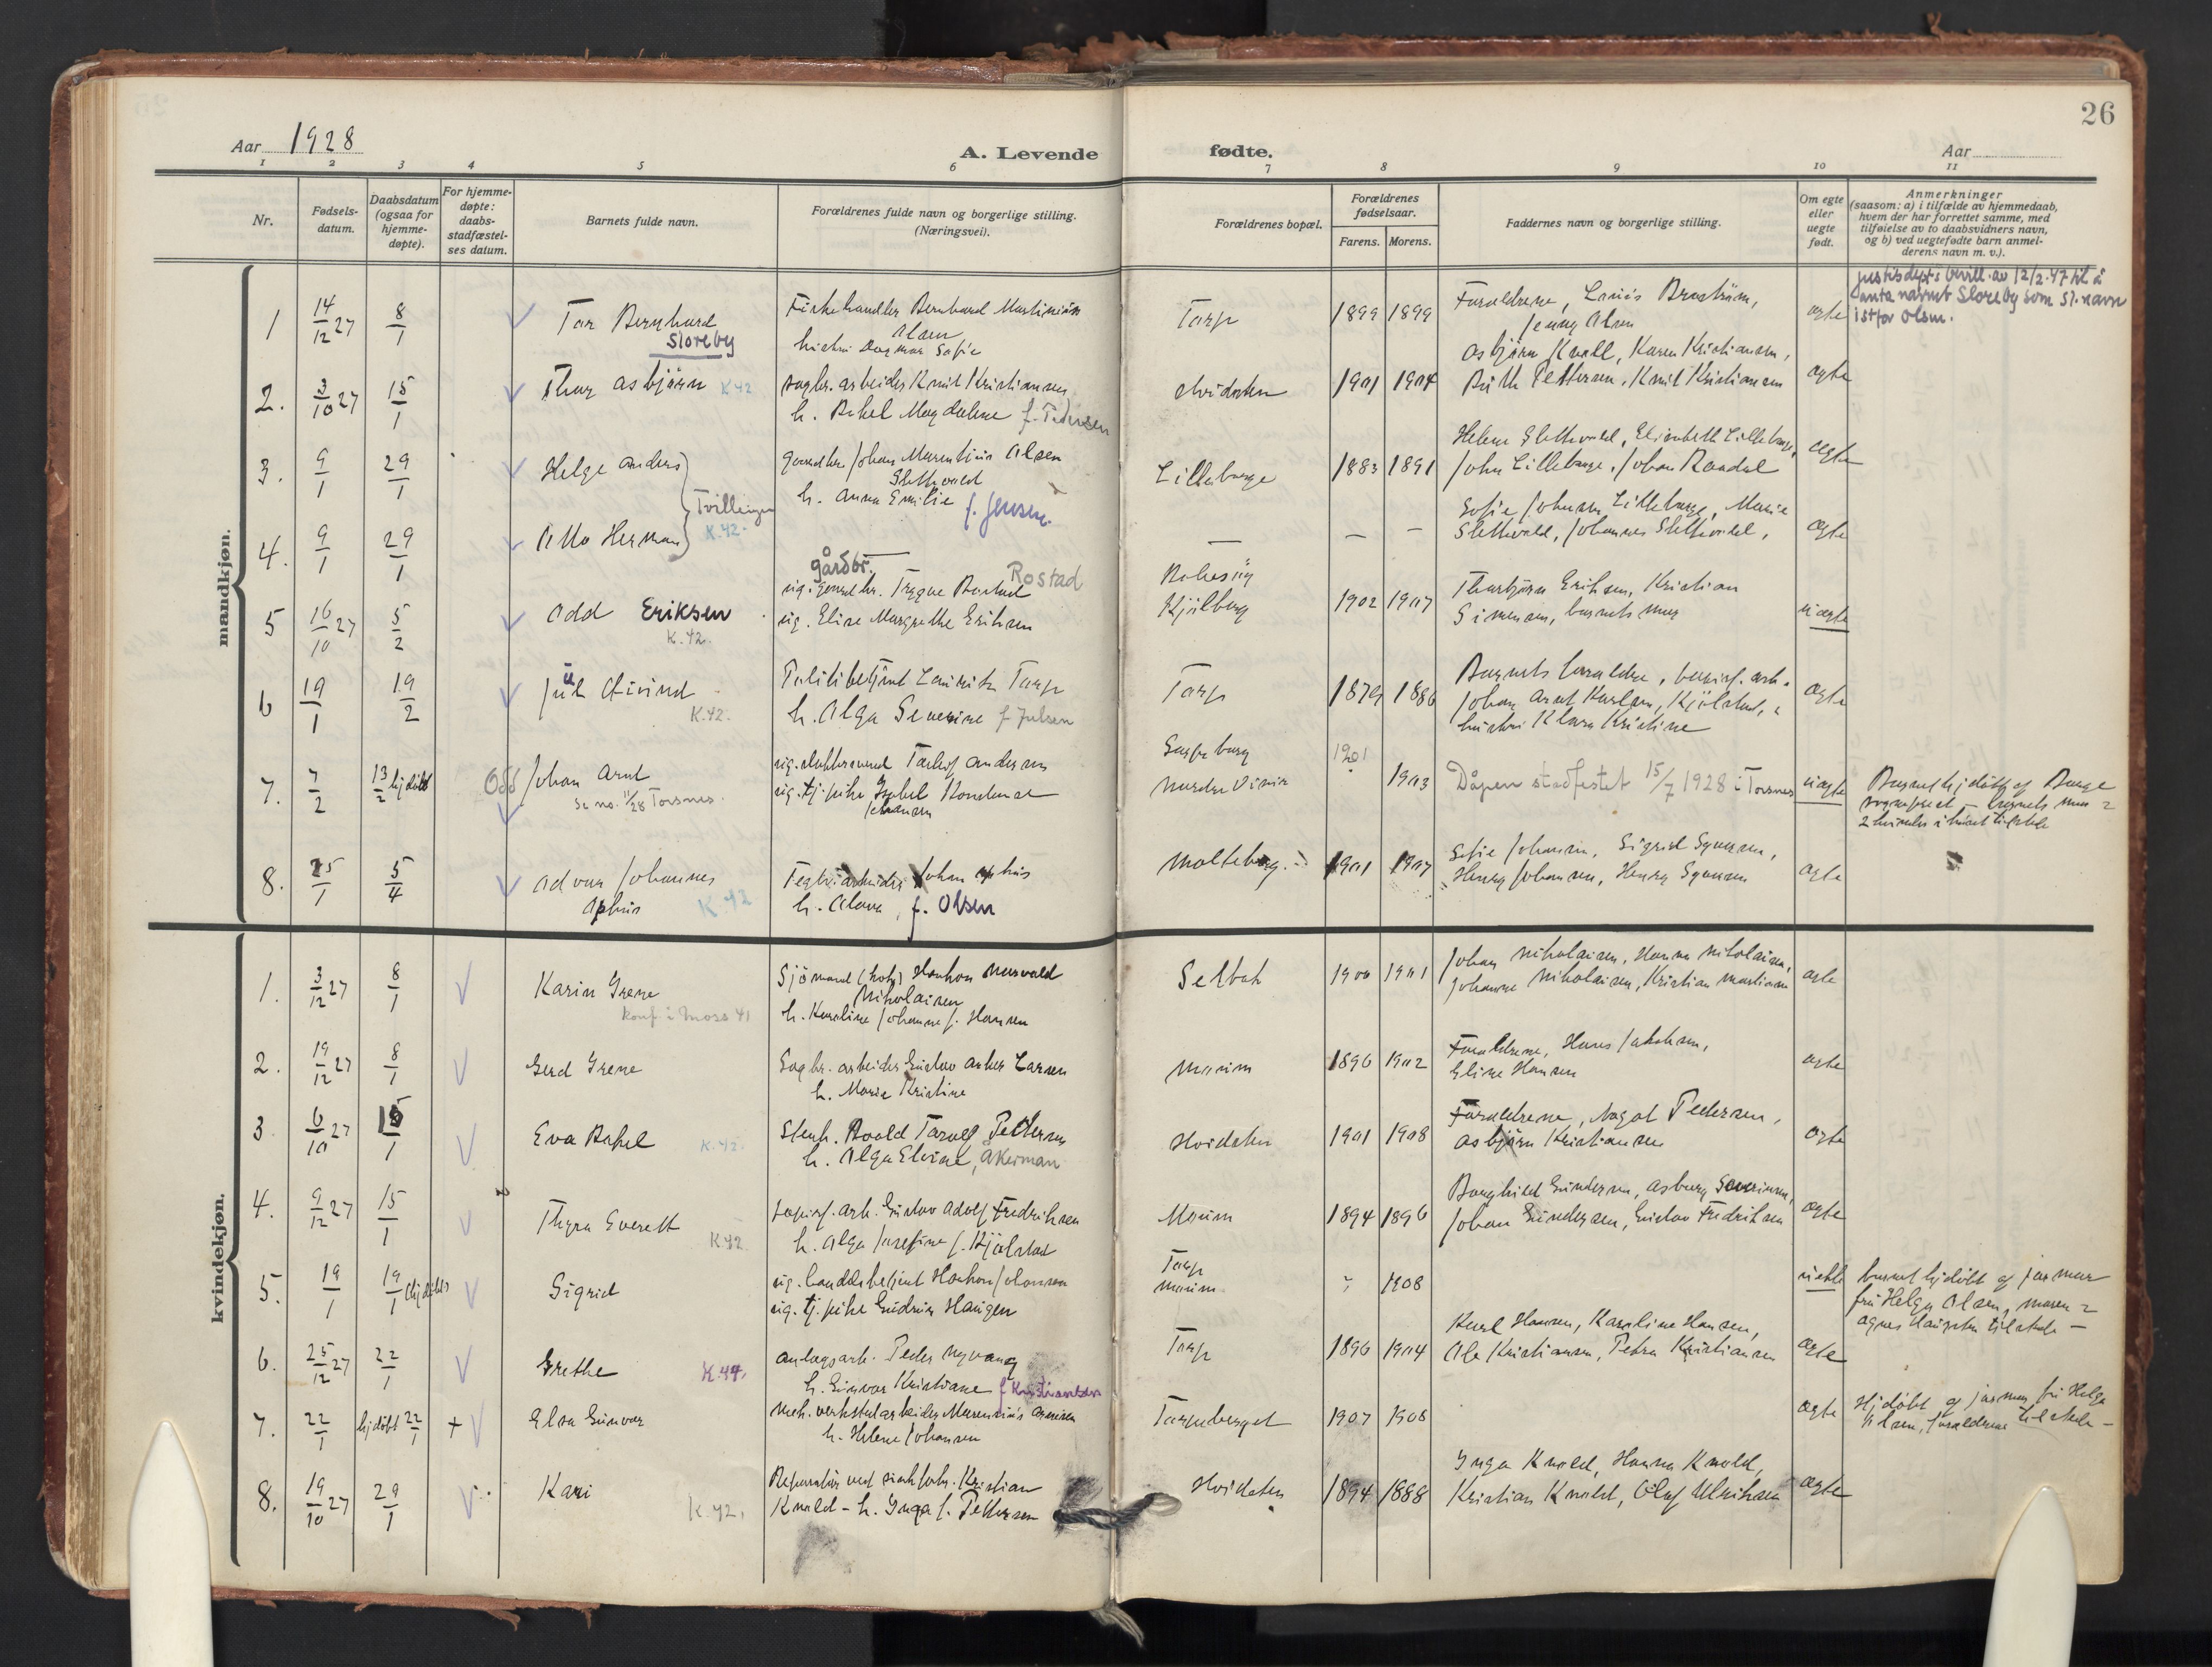 26
Aar 1928
A. Levende fødte.
Aar
1 2 3 4 5 6 7 8 9 10 11
Nr.
Fødsels-
datum.
Daabsdatum
(ogsaa for
hjemme-
døpte).
For hjemme-
døpte:
daabs-
stadfæstel-
ses datum.
Barnets fulde navn.
Forældrenes fulde navn og borgerlige stilling.
(Næringsvei).
Forældrenes bopæl.
Forældrenes
fødselsaar.
Farens. Morens.
Faddernes navn og borgerlige stilling.
Om egte
eller
uegte
født.
Anmerkninger
(saasom: a) i tilfælde av hjemmedaab,
hvem der har forrettet samme, med
tilføielse av to daabsvidners navn,
og b) ved uegtefødte barn anmel-
derens navn m. v.).
mandkjøn.
1 14/12 27 8/1 Tor Bernhard
Sloreby
Fiskehandler Bernhard Martinius
Olsen
hustru Dagmar Sofie
Torp 1899 1899
Forældrene,
Jenny Olsen
ægte
justisdepts bevill. av 12/2-47 til å
anta navnet Sloreby som sl.navn
istfor Olsen.
2. 3/10 27 15/1 Thor Asbjørn K 42
sagbr. arbeider Knut Kristiansen
h. Rakel Magdalene f. Pedersen
Hvidsten 1901 1904
Asbjørn Knold, Karen Kristiansen,
Ruth Pettersen, Knut Kristiansen
ægte
3. 9/1 29/1 Helge Anders
Tvillinger
gaardbr. Johan Marentius Olsen
Slettevold
h. Anna Emilie f. Jensen.
Lilleborge 1883 1891
Helene Slettevold, Elisabeth Lilleborge,
John Lilleborge, Johan Raadal
ægte
4. 9/1 29/1 Otto Herman K.42.
— — —
Sofie Johansen Lilleborge, Marie
Slettevold, Johannes Slettevold,
ægte
5 16/10 27 5/2 Odd Eriksen K.42.
gårdbr. Rostad
ug. gaardbr. Trygve Rostad
ug. Elise Margrethe Eriksen
Kjølberg 1902 1907
Thorbjørn Eriksen, Kristian
Simensen, barnets mor
uægte
6 19/1 19/2 Juul Eivind K.42.
Politibetjent Lauritz Torp
h. Olga Severine f Julsen
Torp 1879 1886
Barnets forældre, papirf. arb.
Johan Arnt Karlsen, Kjølstad,
hustru Klara Kristine
ægte
7. 7/2 13/2 hjdøbt Odd Johan Arnt
Se no. 11/28 Torsnes.
ug. Torleif Andersen
ug. tj. pike Isabel Konstanse
Johansen
Sarpsborg 1901
1903
Dåpen stadfestet 15/7 1928 i Torsnes
uægte
Barnet hjdøbt af Borge
sogneprest — barnets mor
2 kvinder i huset tilstede
8. 25/1 5/4 Advar Johannes
Ophus K.42
Johan Ophus
h. Alova, f. Olsen
Molteberg. 1901 1907
Sofie Johansen, Sigrid Syversen,
Henry Johansen, Henry Syversen
ægte
kvindekjøn.
1. 3/12 27 8/1 Karin Irene
konf i Moss 41
Sjømand (kok) Haakon Norvald
Nikolaisen
h. Karoline Johanne f. Hansen
Selbak 1900 1901
Johan Nikolaisen, Hanna Nikolaisen,
Johanne Nikolaisen, Kristian Martinsen
ægte
2. 19/12 27 8/1 Gerd Irene
Sagbr. arbeider Gustav Asker Larsen
h. Marie Kristine
Moum 1896 1902
Forældrene, Hans Jakobsen,
Eline Hansen
ægte
3. 6/10 27 15/1 Eva Rakel K.42.
Stenh. Roald Torolf Pettersen
h. Olga Elvine, Åkerman
Hvidsten 1901 1908
Forældrene, Magot Pedersen,
Asbjørn Kristiansen
ægte
4. 9/12 27 15/1 Thyra Everett K42
papirf. arb. Gustav Adolf Fredriksen
h. Olga Josefine f. Kjølstad
Moum 1894 1896
Borghild Gundersen, Asborg Severinsen,
Johan Gundersen, Gustav Fredriksen
ægte
5. 19/1 19/1 (hjdøbt) Sigrid
ug. handelsbetjent Haakon Johansen
ug. tj. pike Gudrun Haugen
Torp
Moum 1908
uekte
barnet hjdøbt af jormor
fru Helga Olsen, moren
Agnes tilstede —
6. 25/12 27 22/1 Grethe K.44.
anlægsarb. Peder Nyvang
h. Gunvor Kristiane f Kristiansen
Torp 1896 1904
Karl Hansen, Karoline Hansen,
Ole Kristiansen, Petra Kristiansen
ægte
7. 22/1 hjdøbt 22/1 + Elsa Gunvor
mek. verkstedarbeider Marensius Arnesen
h. Helene Johansen
Torpeberget 1907 1908
ægte
Hjdøbt af jormor fru Helga
Olsen, forældrene tilstede —
8. 19/10 27 29/1 Kari K.42.
Reparatør ved Kristian
Knold - h. Inga f. Pettersen
Hvidsten 1894 1888
Inga Knold, Hanna Knold,
Kristian Knold, Oluf Ulriksen
ægte